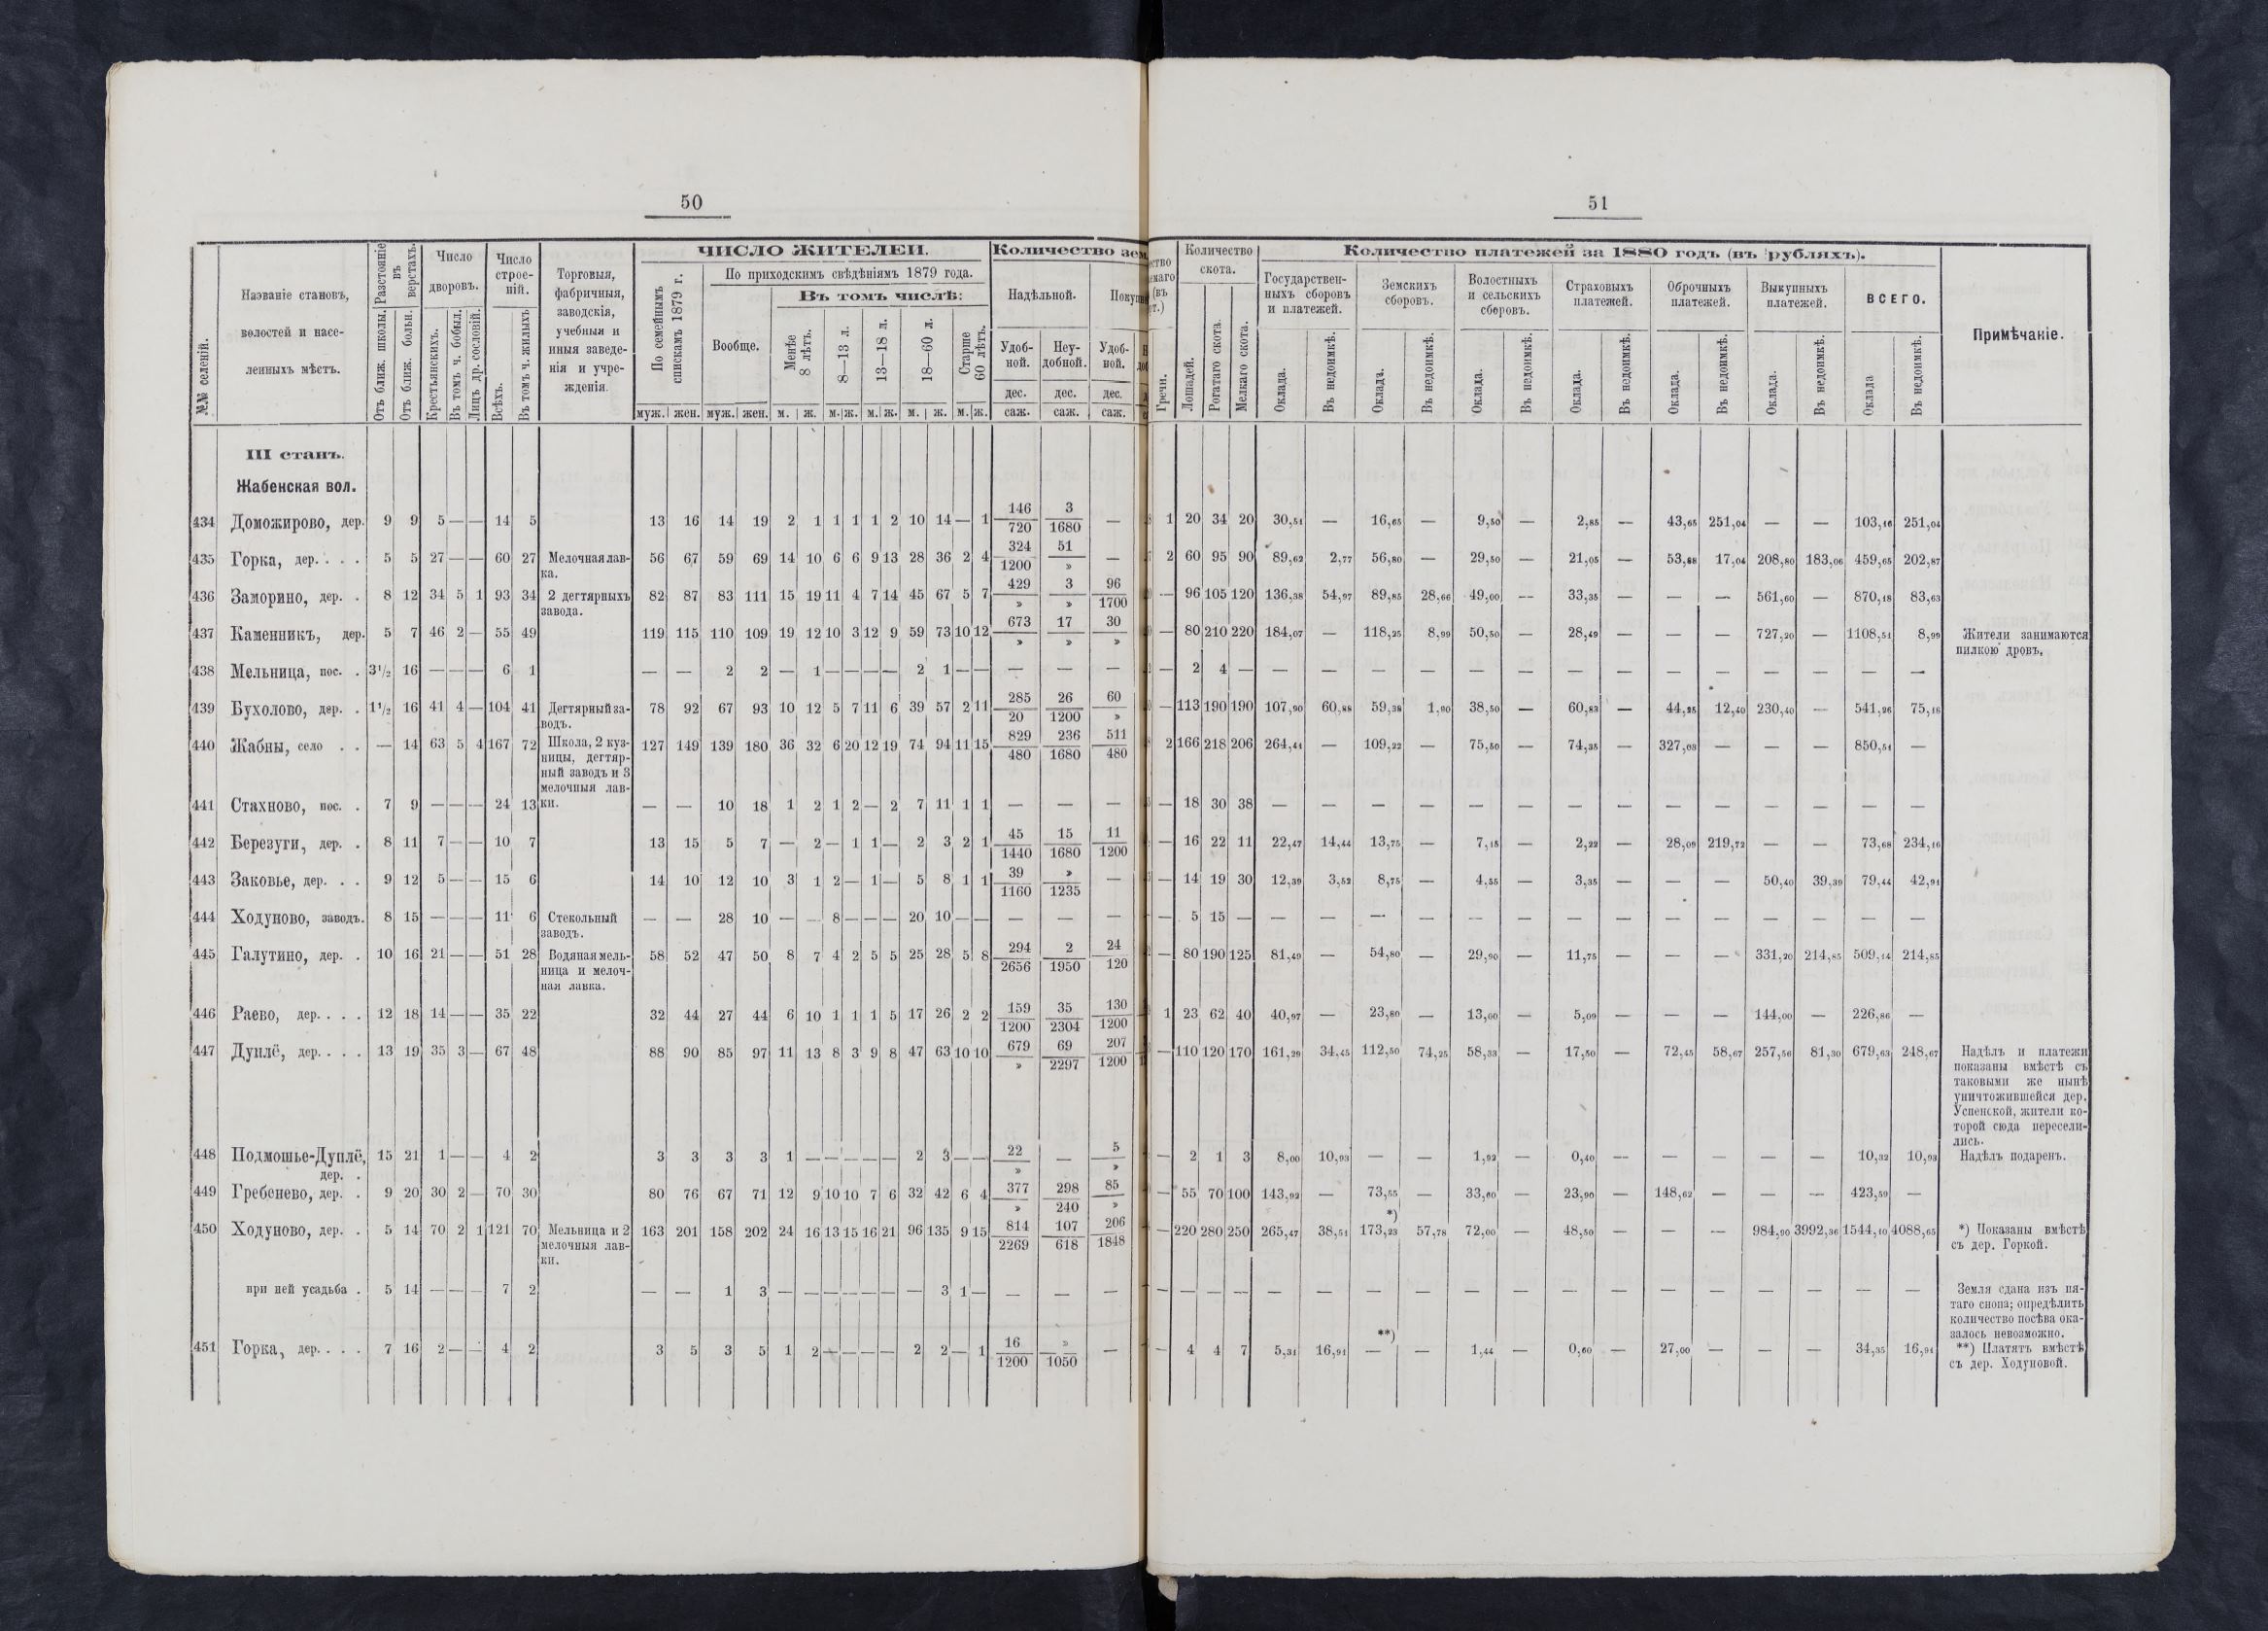 50
№№ селеній.
Названіе становъ, волостей и населенныхъ мѣстъ.
Разстояніе въ верстахъ.
Отъ ближ. школы.
Отъ ближ. больн.
Число дворовъ.
Крестьянскихъ.
Въ томъ ч. бобыл.
Лицъ др. сословій.
Число строеній.
Всѣхъ.
Въ томъ ч. жилыхъ
Торговыя, фабричныя, заводскія, учебныя и иныя заведенія и учрежденія.
ЧИСЛО ЖИТЕЛЕЙ.
По семейнымъ спискамъ 1879 г.
По приходскимъ свѣдѣніямъ 1879 года.
Вообще.
Въ томъ числѣ:
Менѣе 8 лѣтъ.
8—13 л.
13—18 л.
18—60 л.
Старше 60 лѣтъ.
муж. жен. муж. жен. м. ж. м. ж. м. ж. м. ж. м. ж.
Количество зем
Надѣльной.
Удобной.
Неудобной.
Удобной.
дес. дес. дес.
саж. саж. саж.
III станъ.
Жабенская вол.
434 Доможирово, дер. 9 9 5 — — 14 5 13 16 14 19 2 1 1 1 1 2 10 14 — 1 146/720 3/1680 —
435 Горка, дер. . . . 5 5 27 — — 60 27 Мелочная лав- 56 67 59 69 14 10 6 6 9 13 28 36 2 4 324/1200 51/» —
ка.
436 Заморино, дер. . 8 12 34 5 1 93 34 2 дегтярныхъ 82 87 83 111 15 19 11 4 7 14 45 67 5 7 429/» 3/» 96/1700
завода.
437 Каменникъ, дер. 5 7 46 2 — 55 49 119 115 110 109 19 12 10 3 12 9 59 73 10 12 673/» 17/» 30/»
438 Мельница, пос. . 3½ 16 — — — 6 1 — — 2 2 — 1 — — — — 2 1 — — — — —
439 Бухолово, дер. . 1½ 16 41 4 — 104 41 Дегтярный за- 78 92 67 93 10 12 5 7 11 6 39 57 2 11 285/20 26/1200 60/»
водъ.
440 Жабны, село . . — 14 63 5 4 167 72 Школа, 2 куз- 127 149 139 180 36 32 6 20 12 19 74 94 11 15 829/480 236/1680 511/480
ницы, дегтяр-
ный заводъ и 3
мелочныя лав-
ки.
441 Стахново, пос. . 7 9 — — — 24 13 — — 10 18 1 2 1 2 — 2 7 11 1 1 — — —
442 Березуги, дер. . 8 11 7 — — 10 7 13 15 5 7 — 2 — 1 1 — 2 3 2 1 45/1440 15/1680 11/1200
443 Заковье, дер. . . 9 12 5 — — 15 6 14 10 12 10 3 1 2 — 1 — 5 8 1 1 39/1160 »/1235 —
444 Ходуново, заводъ. 8 15 — — — 11 6 Стекольный — — 28 10 — — 8 — — — 20 10 — — — — —
заводъ.
445 Галутино, дер. . 10 16 21 — — 51 28 Водяная мель- 58 52 47 50 8 7 4 2 5 5 25 28 5 8 294/2656 2/1950 24/120
ница и мелоч-
ная лавка.
446 Раево, дер. . . . 12 18 14 — — 35 22 32 44 27 44 6 10 1 1 1 5 17 26 2 2 159/1200 35/2304 130/1200
447 Дуплё, дер. . . . 13 19 35 3 — 67 48 88 90 85 97 11 13 8 3 9 8 47 63 10 10 679/» 69/2297 207/1200
448 Подмошье-Дуплё, 15 21 1 — — 4 2 3 3 3 3 1 — — — — — 2 3 — — 22/» — 5/»
дер. .
449 Гребенево, дер. . 9 20 30 2 — 70 30 80 76 67 71 12 9 10 10 7 6 32 42 6 4 377/» 298/240 85/»
450 Ходуново, дер. . 5 14 70 2 1 121 70 Мельница и 2 163 201 158 202 24 16 13 15 16 21 96 135 9 15 814/2269 107/618 206/1848
мелочныя лав-
ки.
при ней усадьба . 5 14 — — — 7 2 — — 1 3 — — — — — — — 3 1 — — — —
451 Горка, дер. . . . 7 16 2 — — 4 2 3 5 3 5 1 2 — — — — 2 2 — 1 16/1200 »/1050 —
51
Гречи.
Количество скота.
Лошадей.
Рогатаго скота.
Мелкаго скота.
Количество платежей за 1880 годъ (въ рубляхъ).
Государственныхъ сборовъ и платежей.
Земскихъ сборовъ.
Волостныхъ и сельскихъ сборовъ.
Страховыхъ платежей.
Оброчныхъ платежей.
Выкупныхъ платежей.
ВСЕГО.
Оклада. Въ недоимкѣ. Оклада. Въ недоимкѣ. Оклада. Въ недоимкѣ. Оклада. Въ недоимкѣ. Оклада. Въ недоимкѣ. Оклада. Въ недоимкѣ. Оклада Въ недоимкѣ.
Примѣчаніе.
1 20 34 20 30,51 — 16,65 — 9,50 — 2,85 — 43,65 251,04 — — 103,16 251,04
2 60 95 90 89,62 2,77 56,80 — 29,50 — 21,05 — 53,88 17,04 208,80 183,06 459,65 202,87
— 96 105 120 136,38 54,97 89,85 28,66 49,00 — 33,35 — — — 561,60 — 870,18 83,63
— 80 210 220 184,07 — 118,25 8,99 50,50 — 28,49 — — — 727,20 — 1108,51 8,99 Жители занимаются
пилкою дровъ.
— 2 4 — — — — — — — — — — — — — — —
— 113 190 190 107,90 60,88 59,38 1,90 38,50 — 60,83 — 44,25 12,40 230,40 — 541,26 75,18
2 166 218 206 264,41 — 109,22 — 75,50 — 74,35 — 327,03 — — — 850,51 —
— 18 30 38 — — — — — — — — — — — — — —
— 16 22 11 22,47 14,44 13,75 — 7,15 — 2,22 — 28,09 219,72 — — 73,68 234,16
— 14 19 30 12,39 3,52 8,75 — 4,55 — 3,35 — — — 50,40 39,39 79,44 42,91
— 5 15 — — — — — — — — — — — — — — —
— 80 190 125 81,49 — 54,80 — 29,90 — 11,75 — — — 331,20 214,85 509,14 214,85
1 23 62 40 40,97 — 23,80 — 13,00 — 5,09 — — — 144,00 — 226,86 —
— 110 120 170 161,29 34,45 112,50 74,25 58,33 — 17,50 — 72,45 58,67 257,56 81,30 679,63 248,67 Надѣлъ и платежи
показаны вмѣстѣ съ
таковыми же нынѣ
уничтожившейся дер.
Успенской, жители ко-
торой сюда пересели-
лись.
— 2 1 3 8,00 10,93 — — 1,92 — 0,40 — — — — — 10,32 10,93 Надѣлъ подаренъ.
— 55 70 100 143,92 — 73,55 — 33,60 — 23,90 — 148,62 — — — 423,59 —
— 220 280 250 265,47 38,51 *) 173,23 57,78 72,00 — 48,50 — — — 984,90 3992,36 1544,10 4088,65 *) Показаны вмѣстѣ
съ дер. Горкой.
— — — — — — — — — — — — — — — — — — Земля сдана изъ пя-
таго снопа; опредѣлить
количество посѣва ока-
залось невозможно.
— 4 4 7 5,31 16,91 **) — — 1,44 — 0,60 — 27,00 — — — 34,35 16,91 **) Платятъ вмѣстѣ
съ дер. Ходуновой.